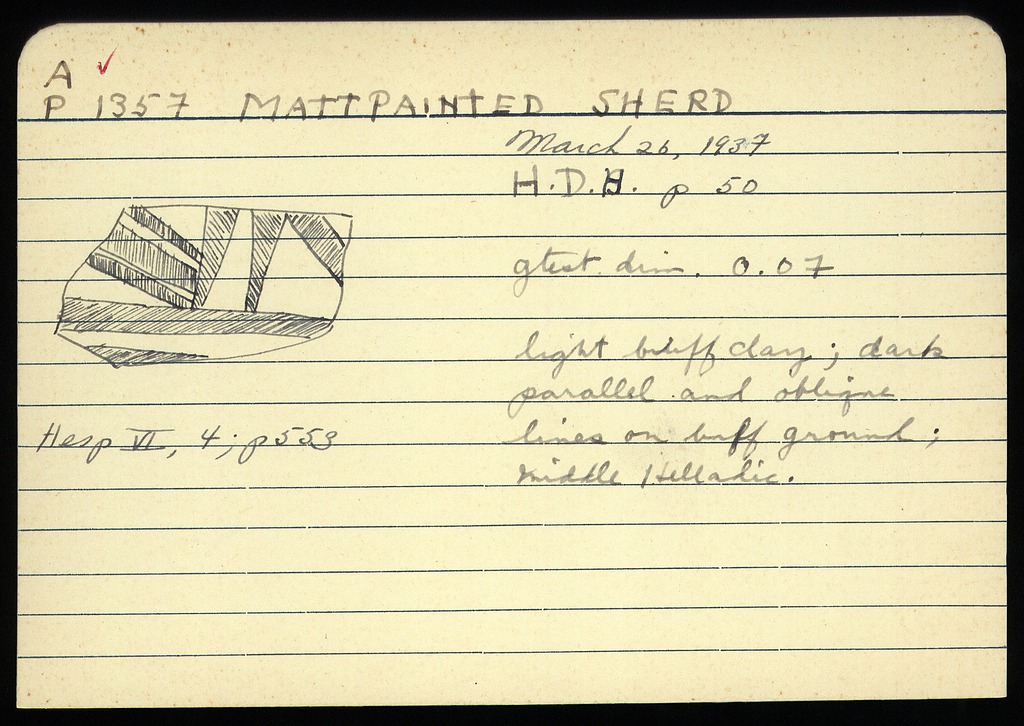 A ✓
P 1357 MATTPAINTED SHERD
March 26, 1937
H.D.H. p 50
gtest dim. 0.07
light buff clay; dark
parallel and oblique
lines on buff ground;
Middle Helladic.
Hesp VI, 4; p553